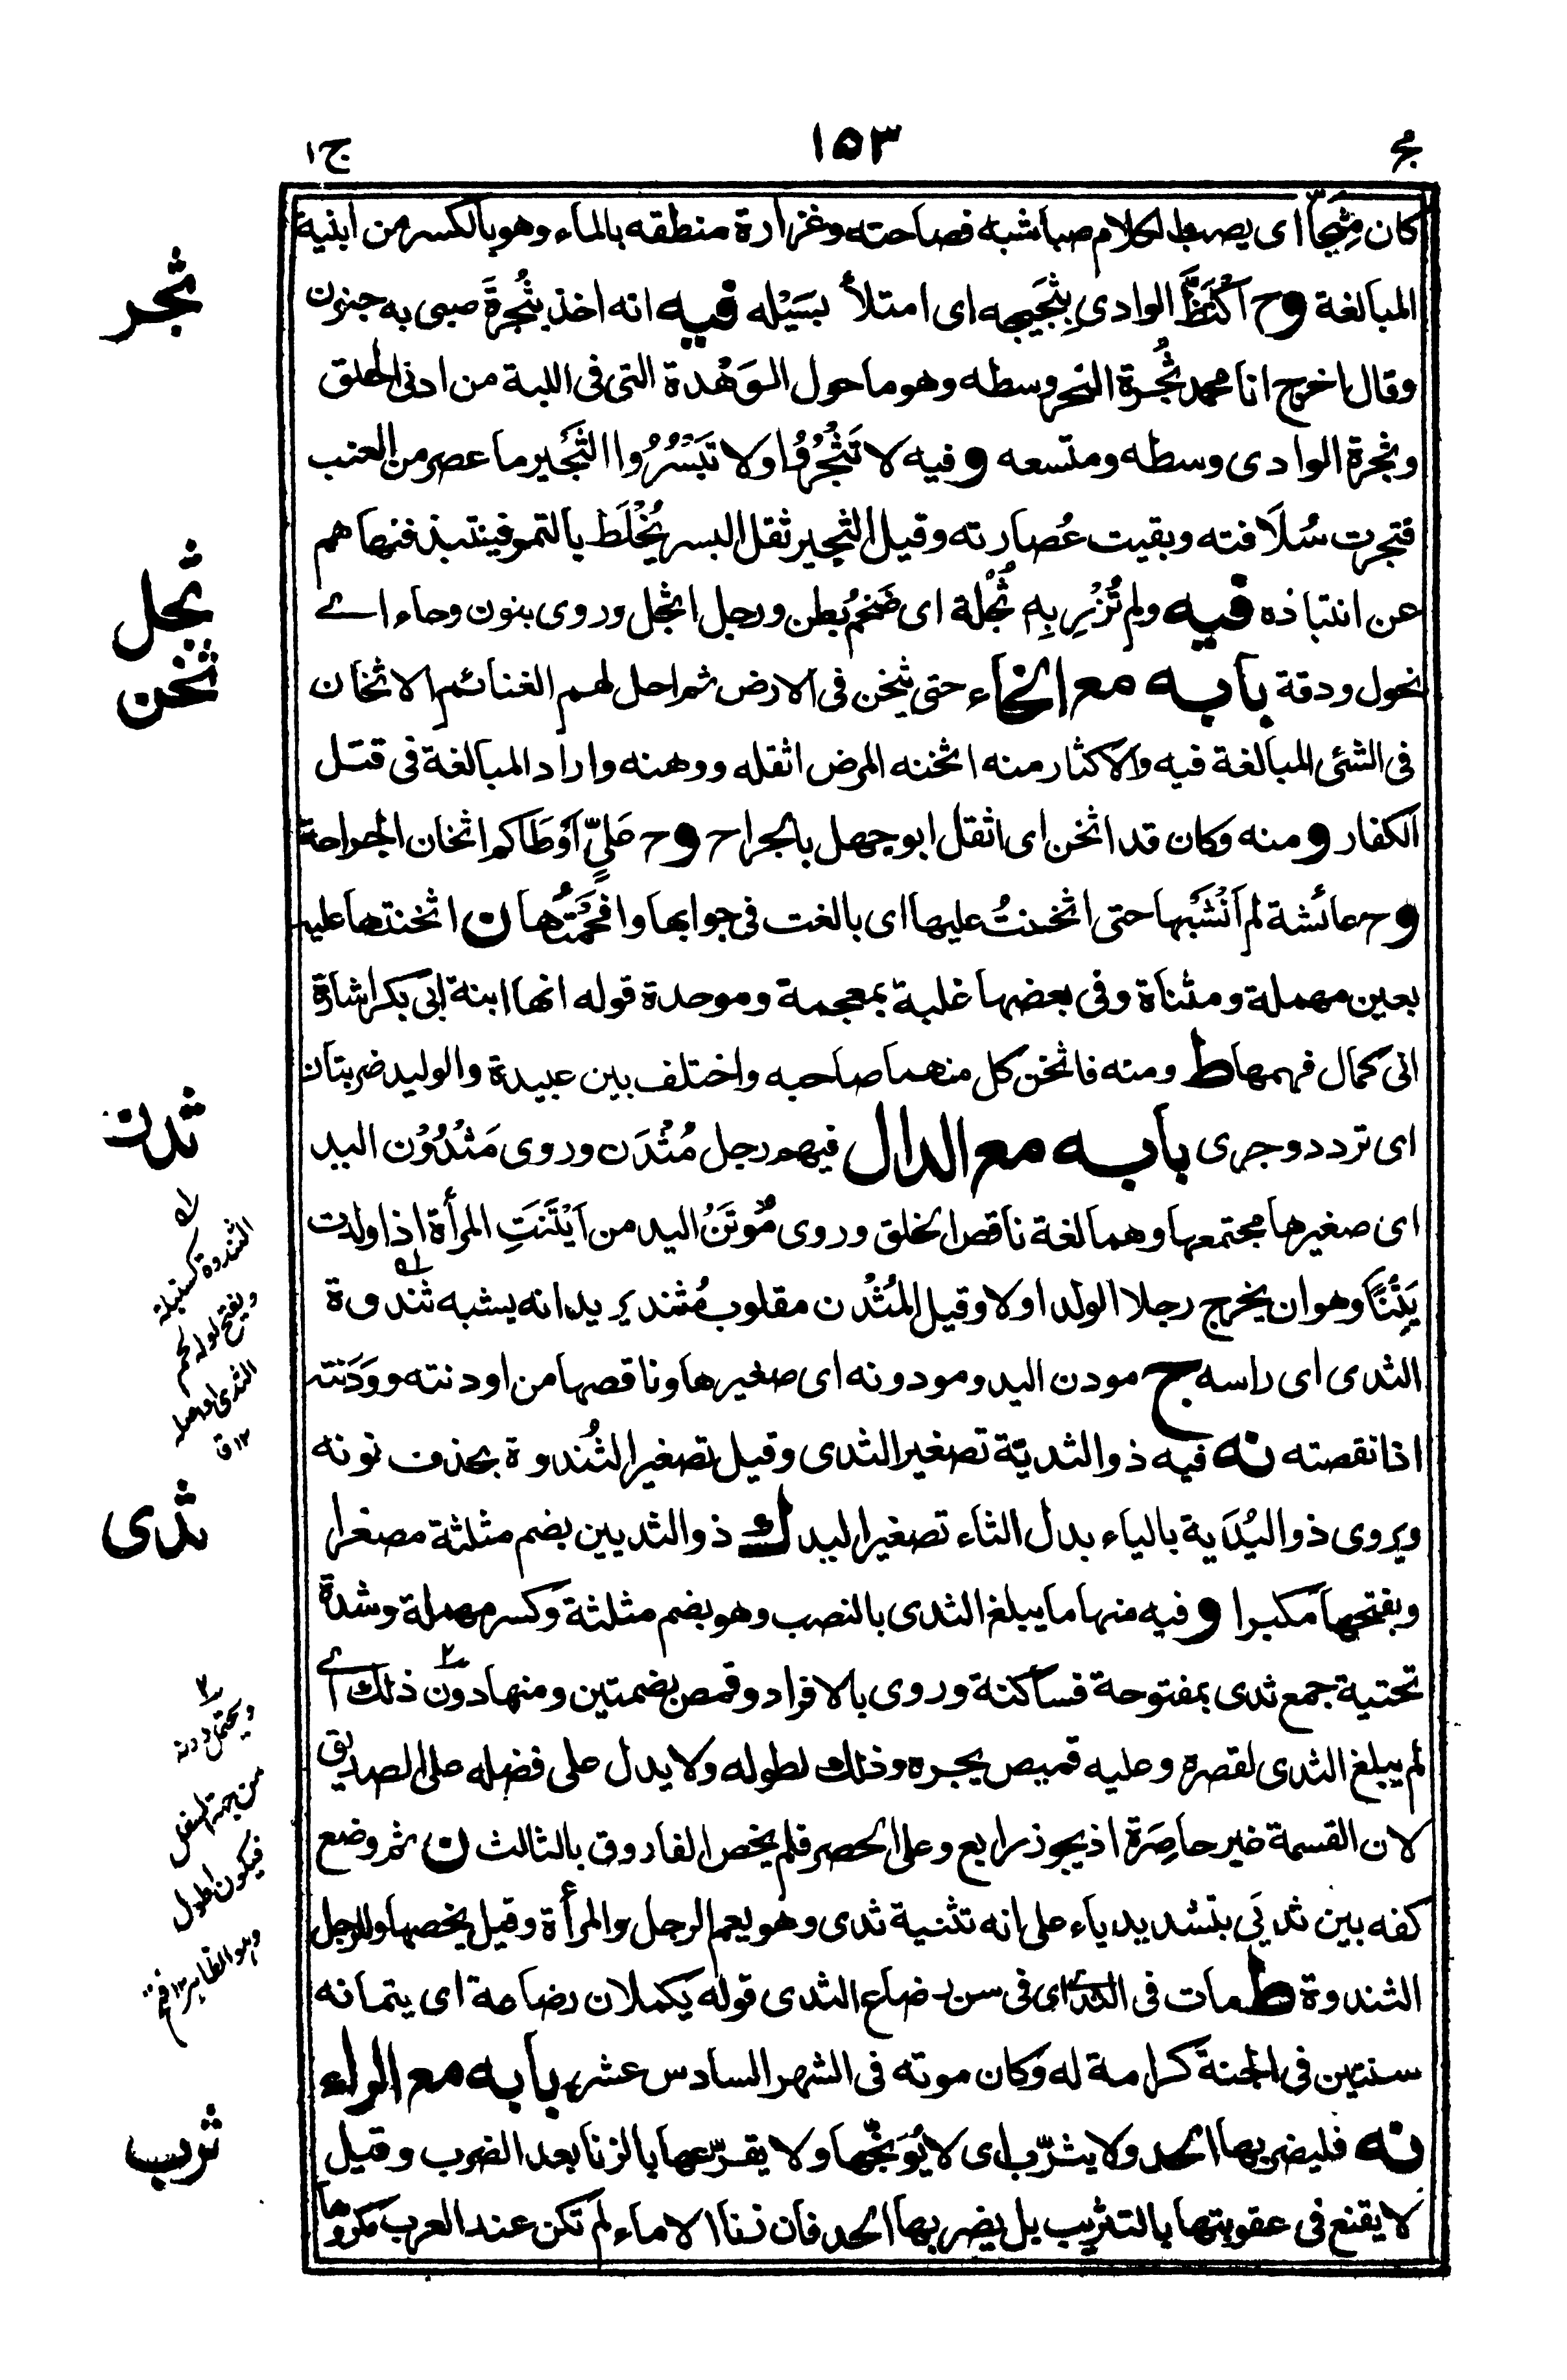 مج ١٥٣ ج١
كان مِثَجّاً اى يصب الكلام صبا شبه فصاحته وغزارة منطقه بالماء وهو بالكسر من ابنية
المبالغة وح اكْتَظَّ الوادى بِثَجَيجه اى امتلأ بسَيْله فيه انه اخذ بثُجرَة صبى به جنون
وقال اخرج انا محمد ثُجرة النحر وسطه وهو ما حول الوَهْدة التى فى اللبة من ادنى الحلق
وثجرة الوادى وسطه ومتسعه وفيه لا تَثْجُرُوا ولا تَبْسُرُوا الثَجير ما عصر من العنب
فتجرت سُلَافته وبقيت عُصارته وقيل الثجير ثقل البسر يُخْلَط بالتمر فينتبذ فنهاهم
عن انتباذه فيه ولم تُزْرِ بِه ثُجْلة اى ضَخم بُطن ورجل اثجل وروى بنون وحاء اے
نحول ودقة بابه مع الخاء حتى يثخن فى الارض ثم احل لهم الغنائم الاثخان
فى الشئى المبالغة فيه والاكثار منه اثخنه المرض اثقله ووهنه واراد المبالغة فى قتل
الكفار ومنه وكان قد اثخن اى اثقل ابو جهل بالجراح وح علىّ اوْطَاكم اثخان الجراحة
وح عائشة لم اَنْشَبْها حتى اثخنتُ عليها اى بالغت فى جوابها وافحَمْتُها ن اثخنتها عليه
بعين مهملة ومثناة وفى بعضها غلبة بمعجمة وموحدة قوله انها ابنة ابى بكر اشارة
الى كمال فهمها ط ومنه فاثخن كل منهما صاحبه واختلف بين عبيدة والوليد ضربتان
اى تردد وجرى بابه مع الدال فيهم رجل مُثْدَن وروى مَثْدُوْن اليد
اى صغيرها مجتمعها وهما لغة ناقص الخلق وروى مُوتَنُ اليد من اَيْتَنَتِ المرأة اذا ولدت
يَتْنًا وهو ان يخرج رجلا الولد اولا وقيل المُثْدن مقلوب مُثند يريد انه يشبه ثُندوة
الثدى اى راسه ج مودن اليد ومودونه اى صغيرها وناقصها من اودنته وودَنته
اذا نقصته نه فيه ذو الثديّة تصغير الثدى وقيل تصغير الثُندوة بحذف نونه
ويروى ذو اليُدَية بالياء بدل الثاء تصغير اليد ك ذو الثديين بضم مثلثة مصغرا
وبفتحها مكبرا وفيه منها ما يبلغ الثدى بالنصب وهو بضم مثلثة وكسر مهملة وشدة
تحتية جمع ثدى بمفتوحة فساكنة وروى بالافراد وقمص بضمتين ومنها دون ذلك اے
لم يبلغ الثدى لقصره وعليه قميص يجره وذلك لطوله ولا يدل على فضله على الصديق
لان القسمة غير حاصِرَة اذ يجوز رابع وعلى الحصر فلم يخص الفاروق بالثالث ن ثم وضع
كفه بين ثديَي بتشديد ياء على انه تثنية ثدى وهو يعم الرجل والمرأة وقيل يخصها وللرجل
الثندوة ط مات فى الثدى اى فى سن رضاع الثدى قوله يكملان رضاعة اى يتمانه
سنتين فى الجنة كرامة له وكان موته فى الشهر السادس عشر، بابه مع الراء
نه فليضربها الحد ولا يثرّب اى لا يُوَبّخها ولا يقرّعها بالزنا بعد الضرب وقيل
لا يقنع فى عقوبتها بالتثريب بل يضربها الحد فان زنا الاماء لم تكن عند العرب مكروها
ثجر
ثجل
ثخن
ثدن
الثندوة كسنبلة
ويفتح اوله لحم
الثدى او اصله
١٢ ق
ثدى
ويحتمل دونه
من جهة السفل
فيكون اطول
وهو الظاهر ١٢ فتح
ثرب